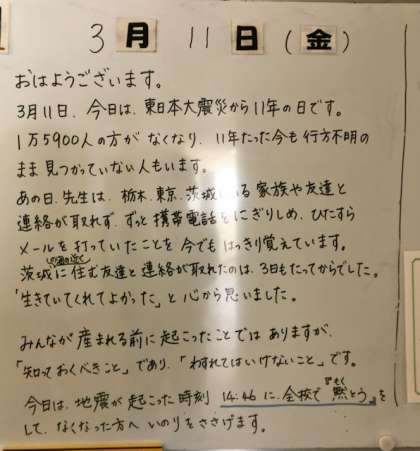 3月11日(金)
おはようございます。
3月11日、今日は、東日本大震災から11年の日です。
1万5900人の方がなくなり、11年たった今も行方不明の
まま見つかっていない人もいます。
あの日、先生は、栃木、東京、茨城にいる家族や友達と
連絡が取れず、ずっと携帯電話をにぎりしめ、ひたすら
メールを打っていたことを今でもはっきり覚えています。
茨城に住む友達と連絡が取れたのは、3日もたってからでした。
「生きていてくれてよかった」と心から思いました。
みんなが産まれる前に起こったことではありますが、
「知っておくべきこと」であり、「わすれてはいけないこと」です。
今日は、地震が起こった時刻 14:46に、全校で『黙とう』を
もく
して、なくなった方へいのりをささげます。